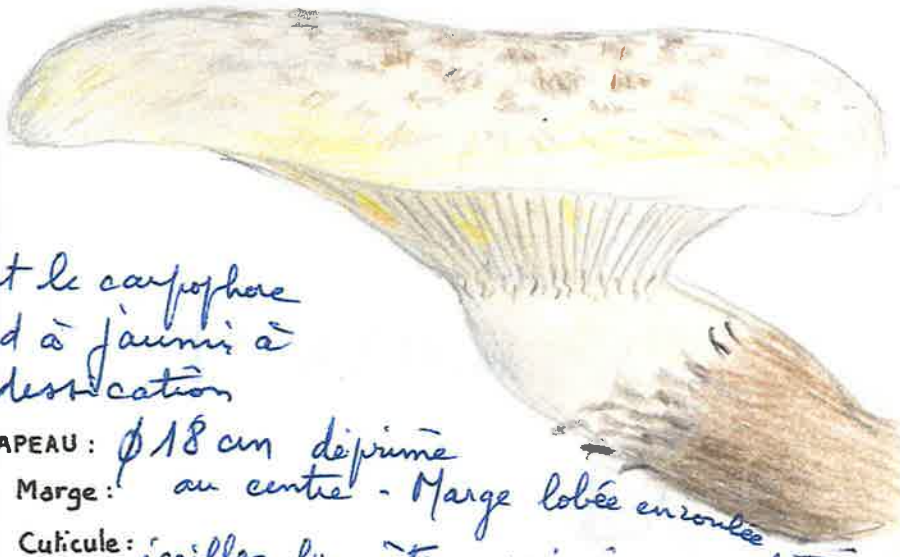 t le carpophore
d à jaunir à
dessication
APEAU : ϕ 18 cm déprimé
Marge : au centre - Marge lobée enroulée
Cuticule :